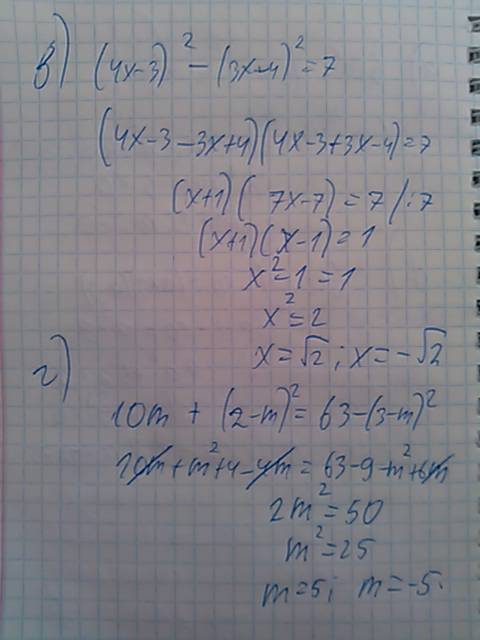 в) (4x-3)² - (3x-4)² = 7
(4x-3-3x+4)(4x-3+3x-4)=7
(x+1)(7x-7) = 7 /:7
(x+1)(x-1)=1
x²-1=1
x²=2
x=√2; x=-√2
г)
10m + (2-m)² = 63-(3-m)²
10m+m²+4-4m = 63-9-m²+6m
2m²=50
m²=25
m=5; m=-5.